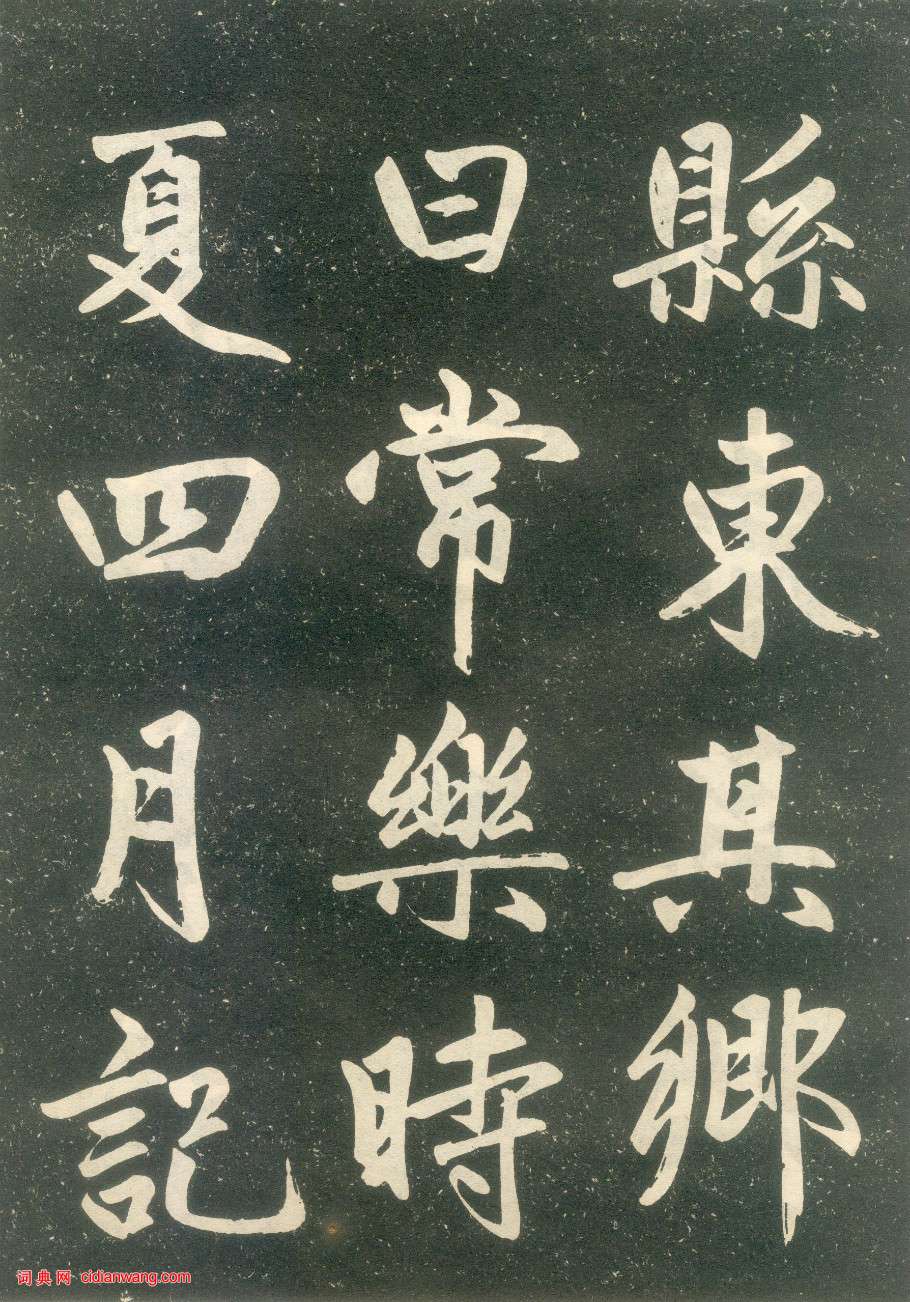 縣東其鄉
曰常樂時
夏四月記
词典网 cidianwang.com